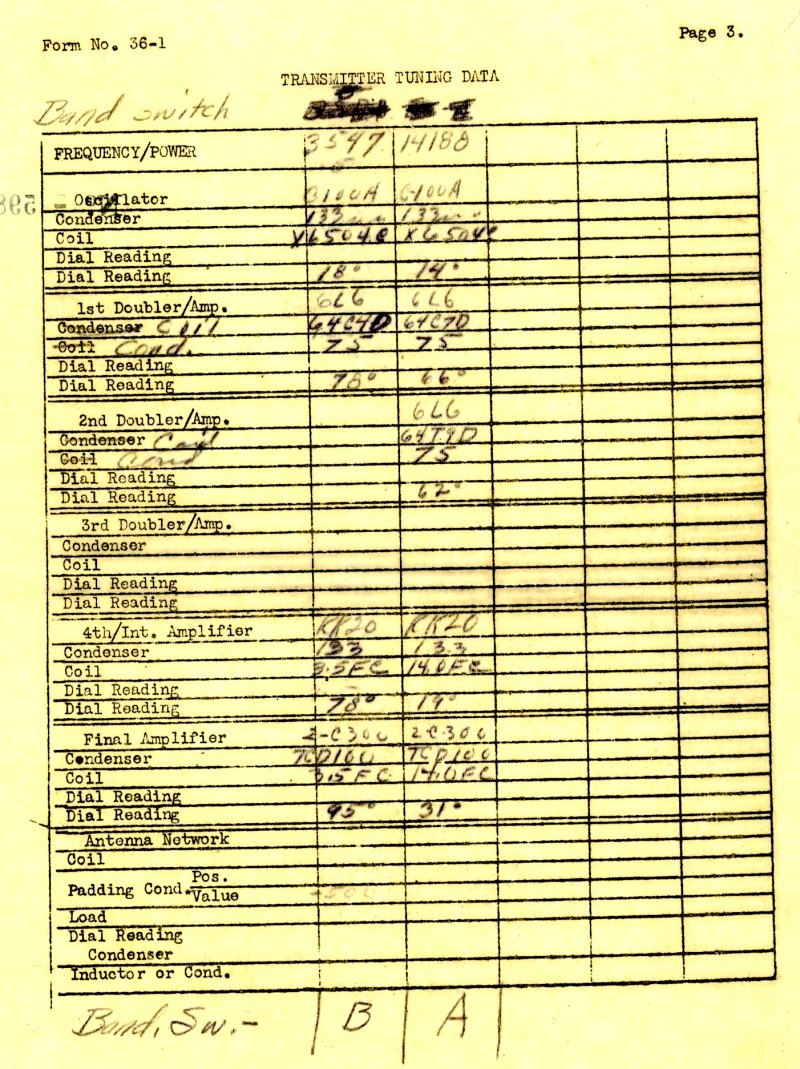 Form No. 36-1
Page 3.
TRANSMITTER TUNING DATA
Band switch
FREQUENCY/POWER 3547 14188
Oscillator C100A C100A
Condenser 133 133
Coil X6504C X6504C
Dial Reading
Dial Reading 18° 14°
1st Doubler/Amp. 6L6 6L6
Condenser Coil 64C4D 64C7D
Coil Cond. 75 75
Dial Reading
Dial Reading 78° 66°
2nd Doubler/Amp. 6L6
Condenser Coil 64T9D
Coil Cond 75
Dial Reading
Dial Reading 62°
3rd Doubler/Amp.
Condenser
Coil
Dial Reading
Dial Reading
4th/Int. Amplifier RK20 RK20
Condenser 133 133
Coil 3.5FC 14.0FC
Dial Reading
Dial Reading 78° 19°
Final Amplifier 2-C300 2-C300
Condenser TCD100 TCD100
Coil 3.5FC 14.0FC
Dial Reading
Dial Reading 95° 31°
Antenna Network
Coil
Padding Cond. Pos.
Value
Load
Dial Reading
Condenser
Inductor or Cond.
Band. Sw.- B A